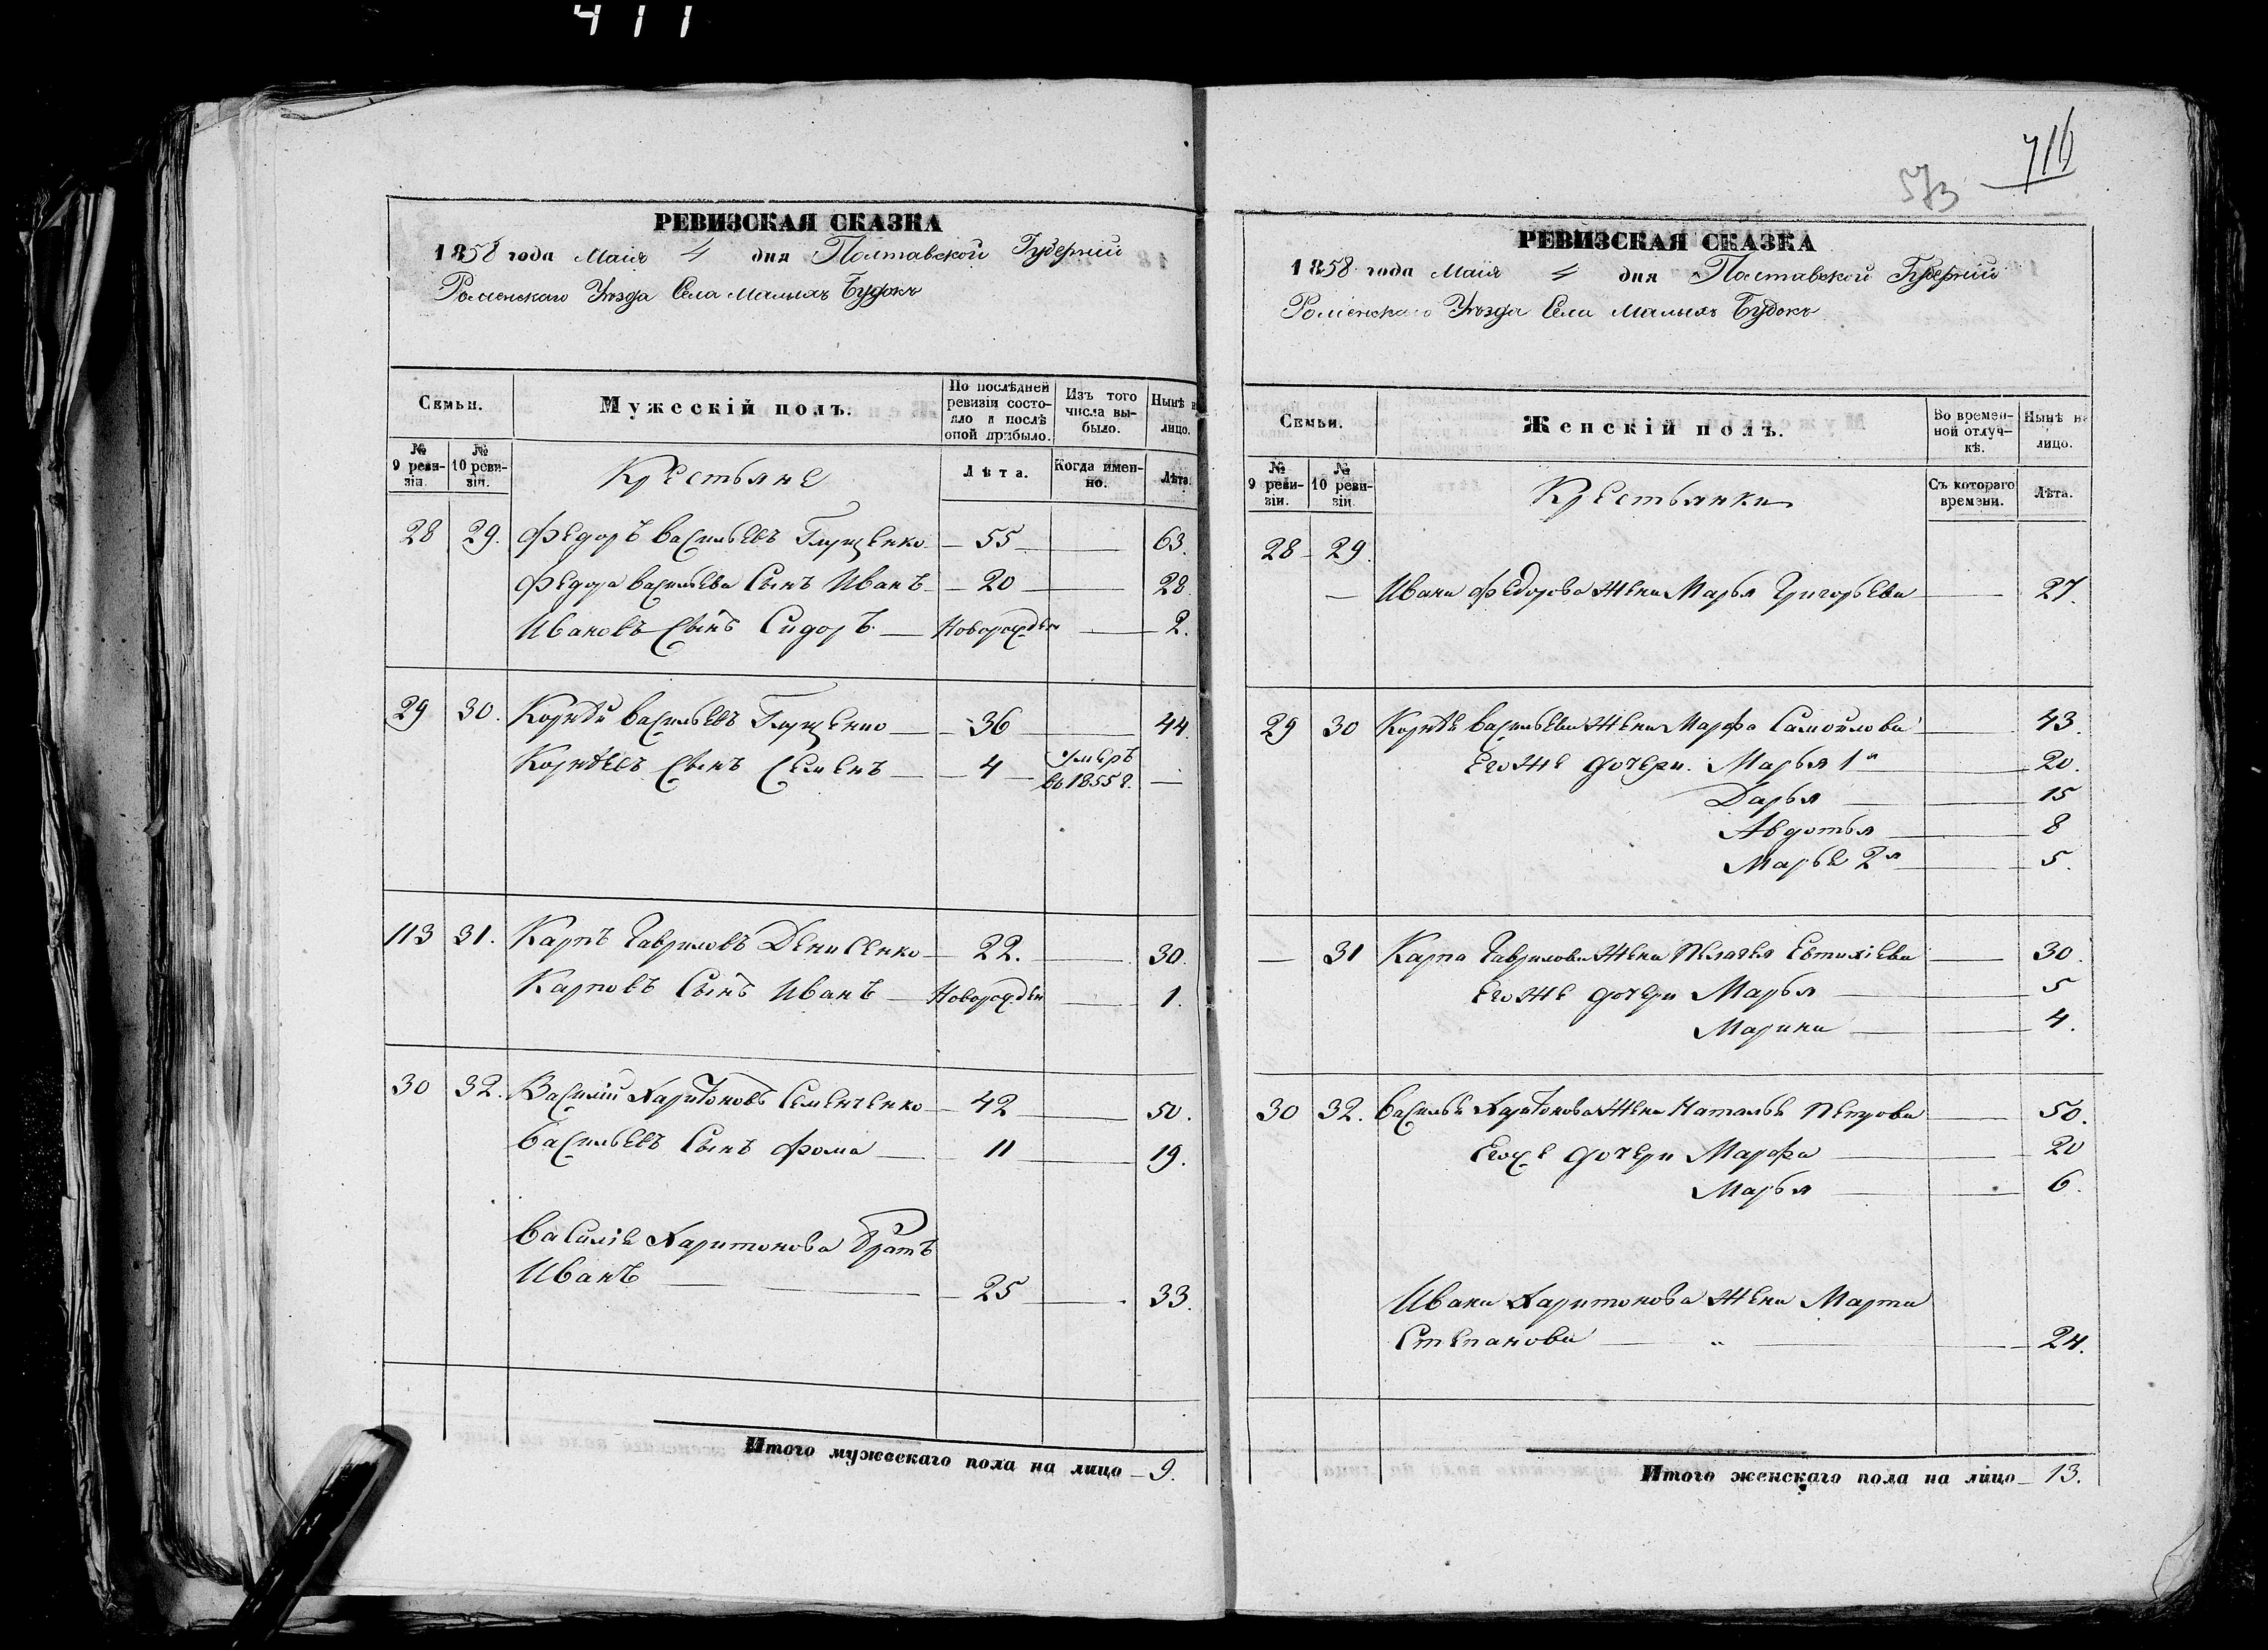 411
РЕВИЗСКАЯ СКАЗКА
1858 года Маія 4 дня Полтавской Губерніи
Роменскаго Уѣзда Села Малыхъ Будокъ
Семьи.
Мужескій полъ.
По послѣдней ревизіи состояло и послѣ оной прибыло.
Изъ того числа выбыло.
Нынѣ на лицо.
№ 9 ревизіи.
№ 10 ревизіи.
Крестьяне
Лѣта.
Когда именно.
Лѣта.
28 29. Федоръ Васильевъ Глущенко 55 63.
Федора Васильева Сынъ Иванъ 20 28
Ивановъ Сынъ Сидоръ Новорожден 2.
29 30. Корнѣй Васильевъ Глущенко 36 44.
Корнѣевъ Сынъ Семенъ 4 Умеръ въ 1855 г. —
113 31. Карпъ Гавриловъ Денисенко 22. 30.
Карповъ Сынъ Иванъ Новорожден 1.
30 32. Василій Харитоновъ Семенченко 42 50.
Васильевъ Сынъ Фома 11 19.
Василія Харитонова братъ
Иванъ 25 33.
Итого мужескаго пола на лицо 9.
716
573
РЕВИЗСКАЯ СКАЗКА
1858 года Маія 4 дня Полтавской Губерніи
Роменскаго Уѣзда Села Малыхъ Будокъ
Семьи.
Женскій полъ.
Во временной отлучкѣ.
Нынѣ на лицо.
№ 9 ревизіи.
№ 10 ревизіи.
Крестьянки
Съ котораго времени.
Лѣта.
28 29.
Ивана Федорова Жена Марья Григорьева 27.
29 30 Корнѣя Васильева Жена Марфа Самойлова 43.
Его Же дочери. Марья 1я 20.
Дарья 15
Авдотья 8
Марья 2я 5.
— 31 Карпа Гаврилова Жена Пелагея Евтихіева 30.
Его Же дочери Марья 5
Марина 4.
30 32. Василья Харитонова Жена Наталья Петрова 50.
Его же дочери Марфа 20
Марья 6.
Ивана Харитонова Жена Марта
Степанова 24.
Итого женскаго пола на лицо 13.